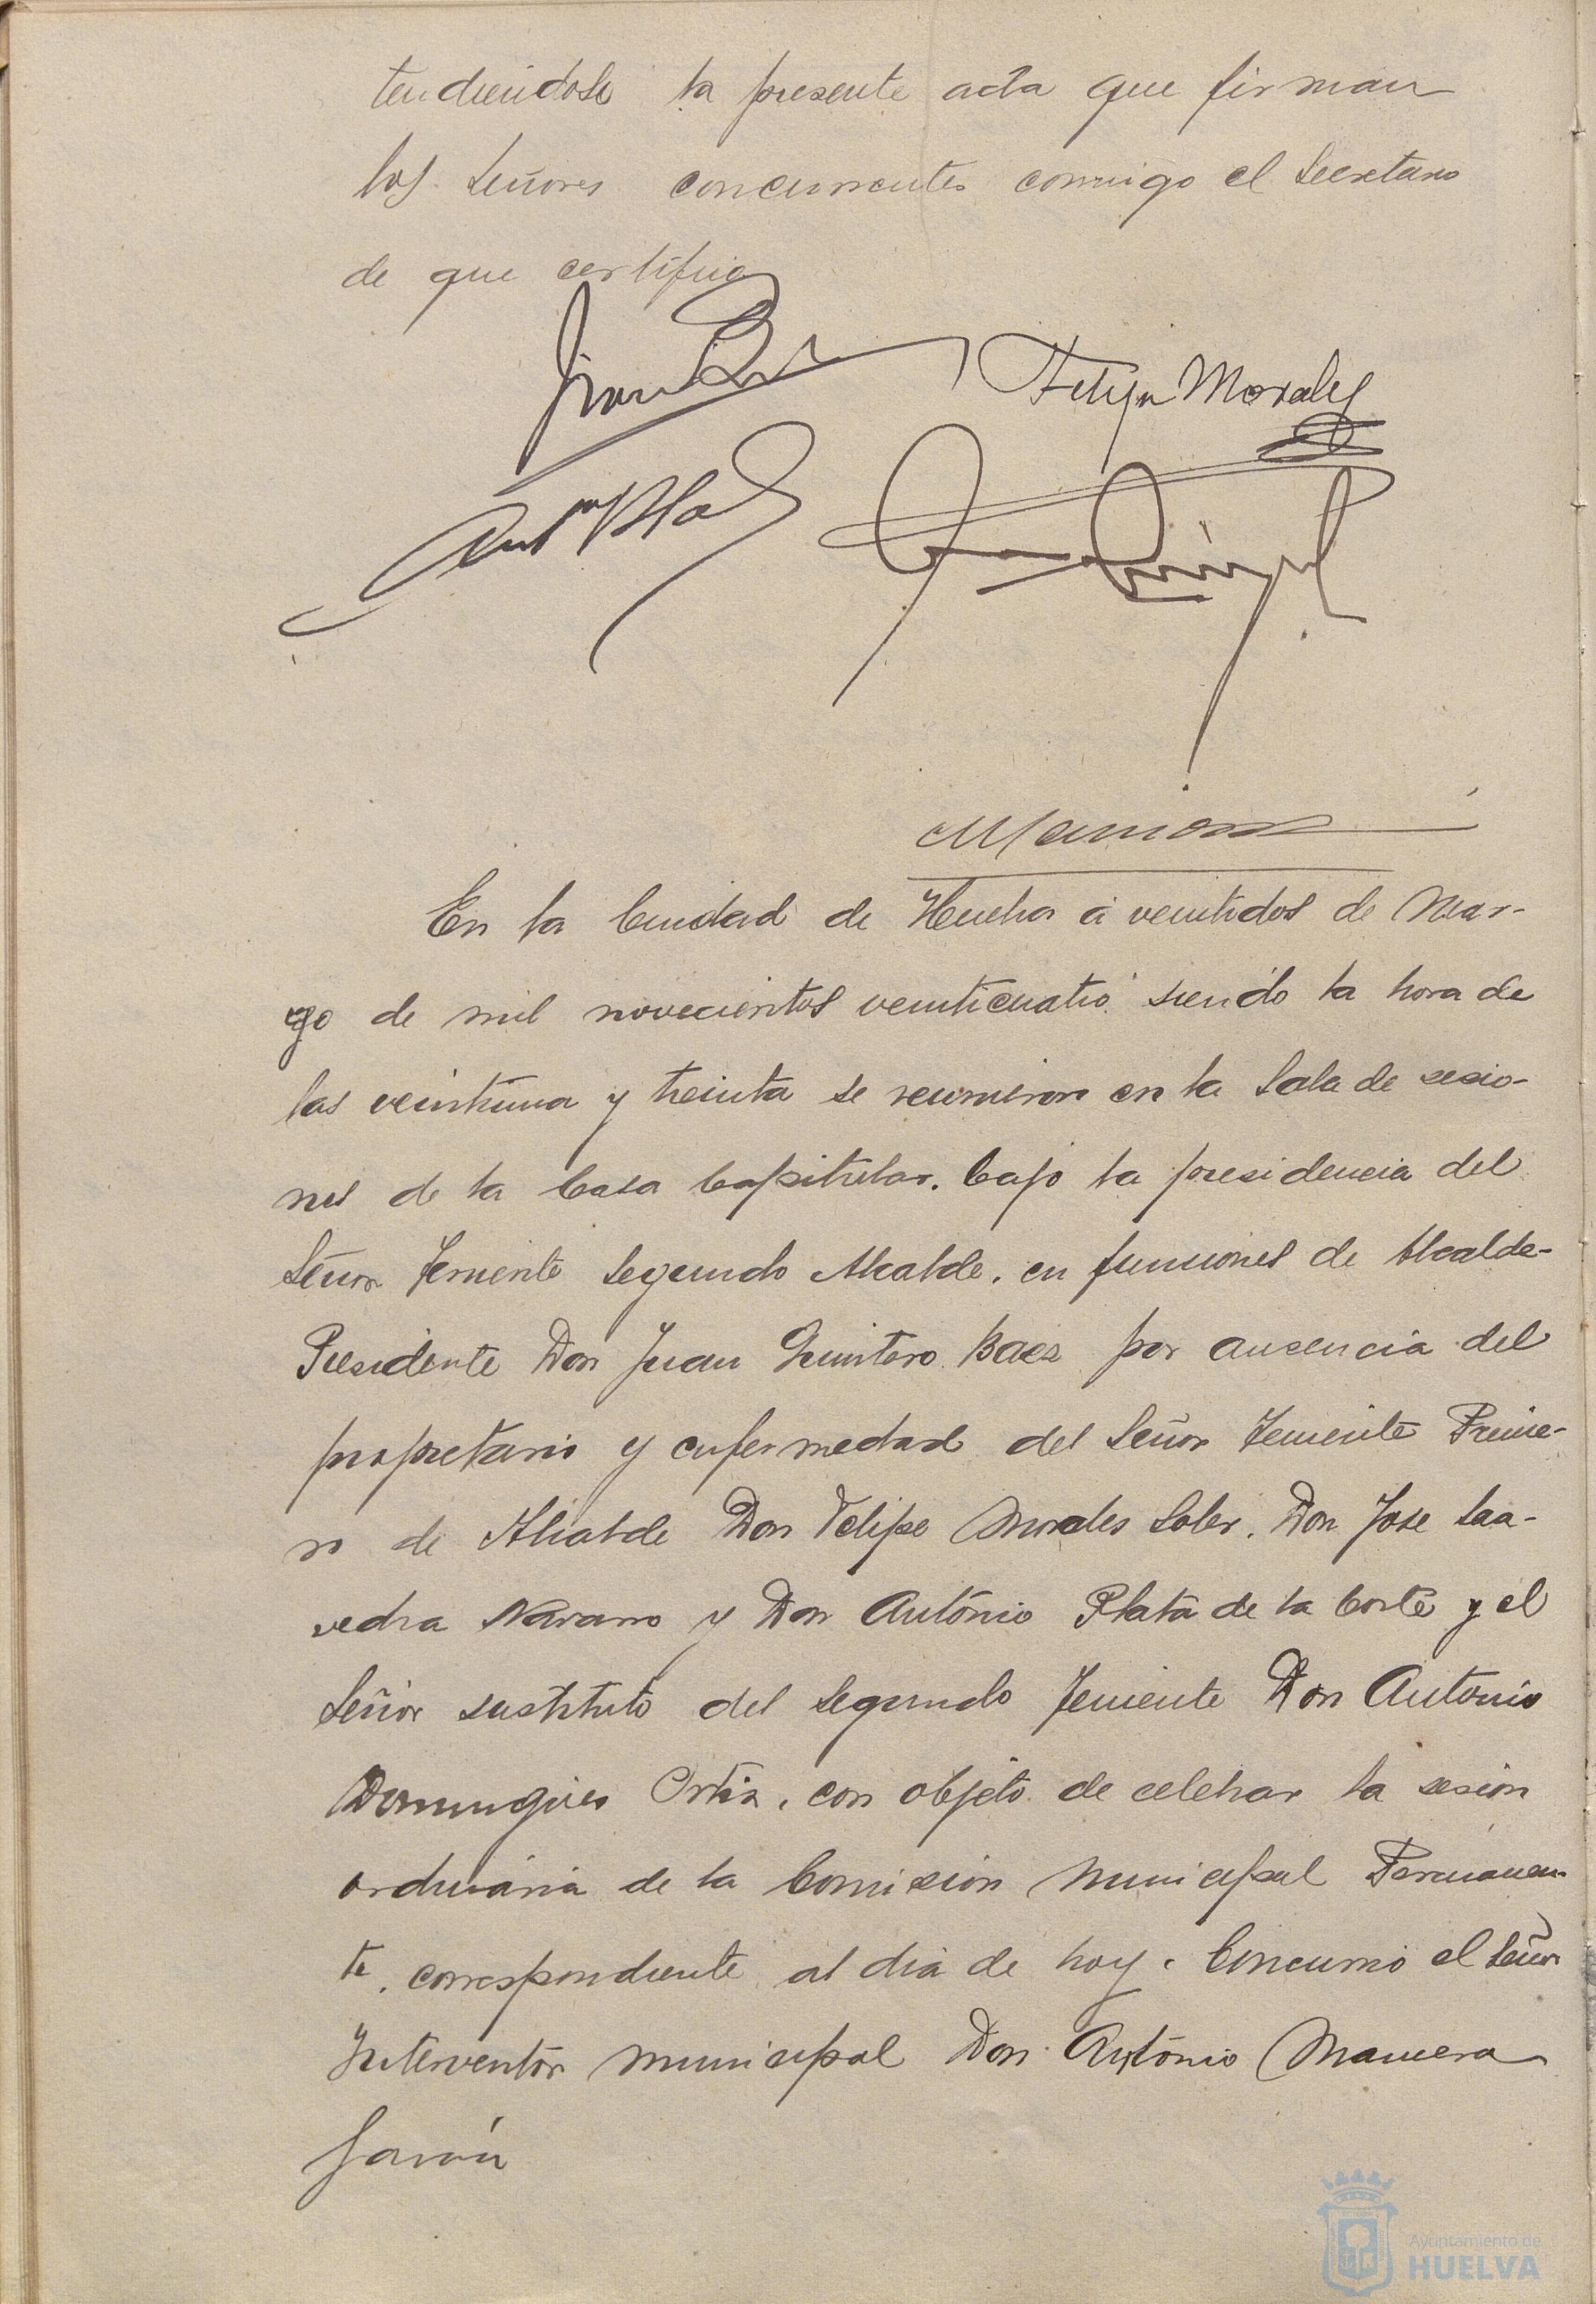 tendiendose la presente acta que firman
los Señores concurrentes conmigo el Secretario
de que certifico
Felipe Morales
Ant.º Plata
En la Ciudad de Huelva á veintidos de Mar-
zo de mil novecientos veinticuatro siendo la hora de
las veintiuna y treinta se reunieron en la Sala de sesio-
nes de la Casa Capitular, bajo la presidencia del
Señor Teniente segundo Alcalde, en funciones de Alcalde-
Presidente Don Juan Quintero Baez por ausencia del
propietario y enfermedad del Señor Teniente Prime-
ro de Alcalde Don Felipe Morales Soler, Don Jose Saa-
vedra Navarro y Don António Plata de la Corte y el
Señor sustituto del segundo Teniente Don Antonio
Dominguez Ortiz, con objeto de celebrar la sesion
ordinária de la Comision Municipal Permanen-
te, correspondiente al dia de hoy. Concurrió el Señor
Interventor municipal Don António Mancera
Garcia
Ayuntamiento de
HUELVA